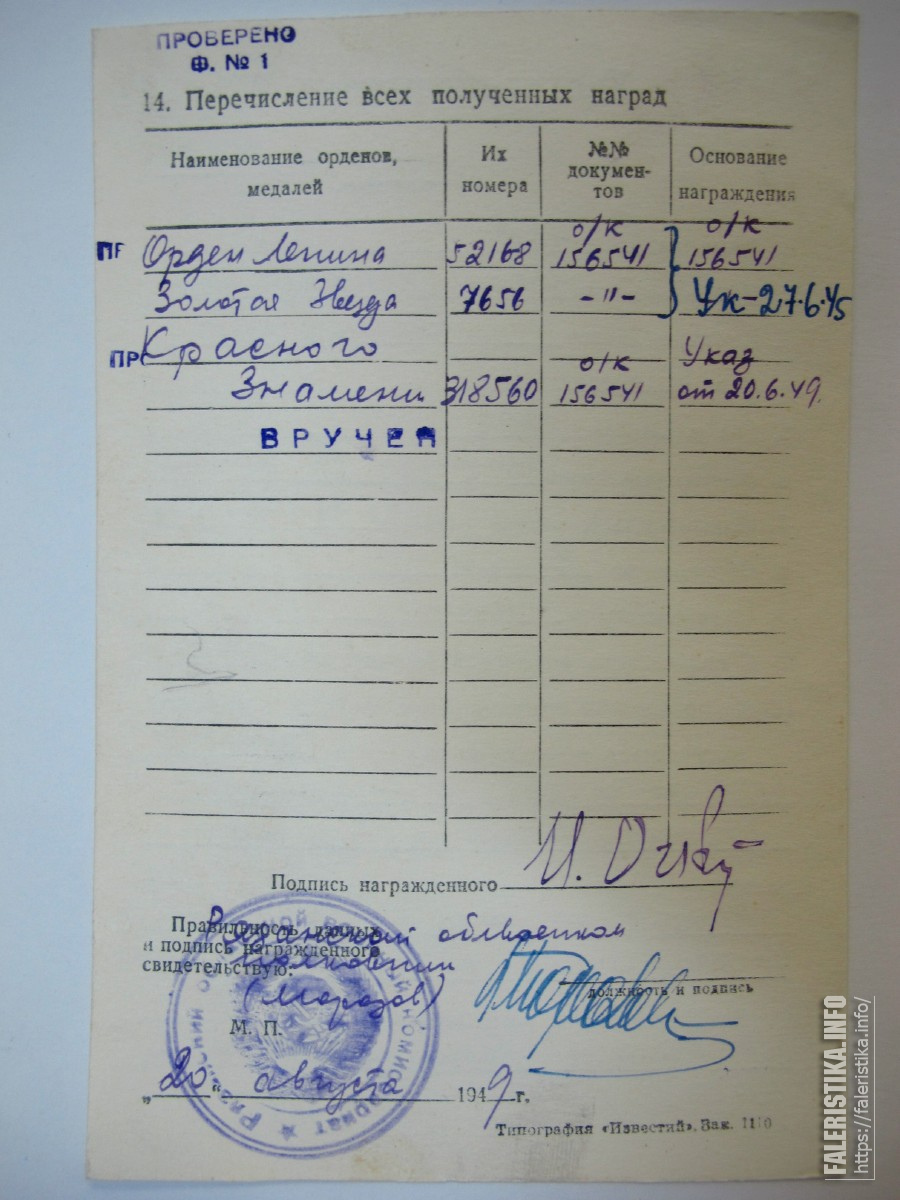 ПРОВЕРЕНО
Ф. № 1
14. Перечисление всех полученных наград
Наименование орденов, медалей
Их номера
№№ документов
Основание награждения
о/к о/к
ПР Орден Ленина 52168 156541 156541
Золотая Звезда 7656 -"- Ук-27.6.45
ПР Красного о/к Указ
Знамени 318560 156541 от 20.6.49.
ВРУЧЕН
Подпись награжденного И.
Правильность данных
и подпись награжденного
свидетельствую:
Рязанский облвоенком
полковник
(Морозов)
должность и подпись
М. П.
„20“ августа 1949 г.
Типография «Известий». Зак. 1110
FALERISTIKA.INFO
https://faleristika.info/